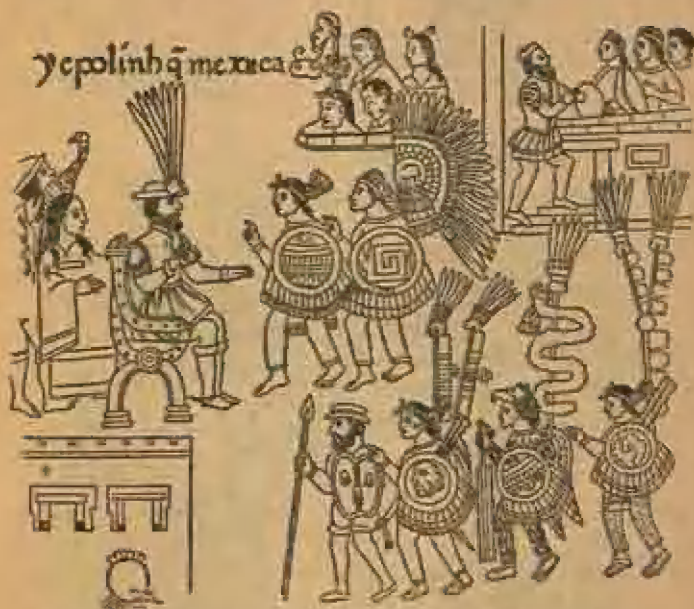 yepoliuh q̃ mexica